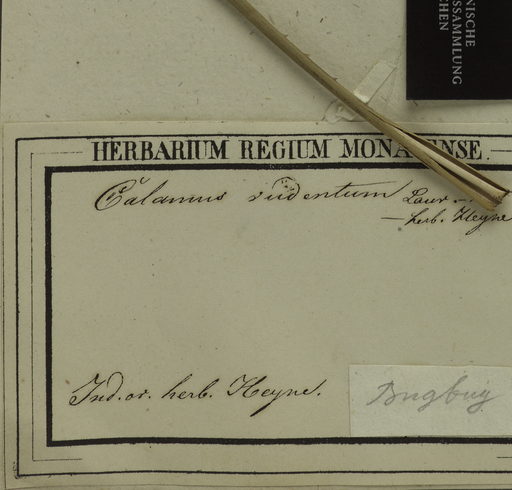 NISCHE
SSAMMLUNG
CHEN
HERBARIUM REGIUM MONACENSE.
Calamus rudentum Lour.
— herb. Heyne
Ind. or. herb. Heyne.